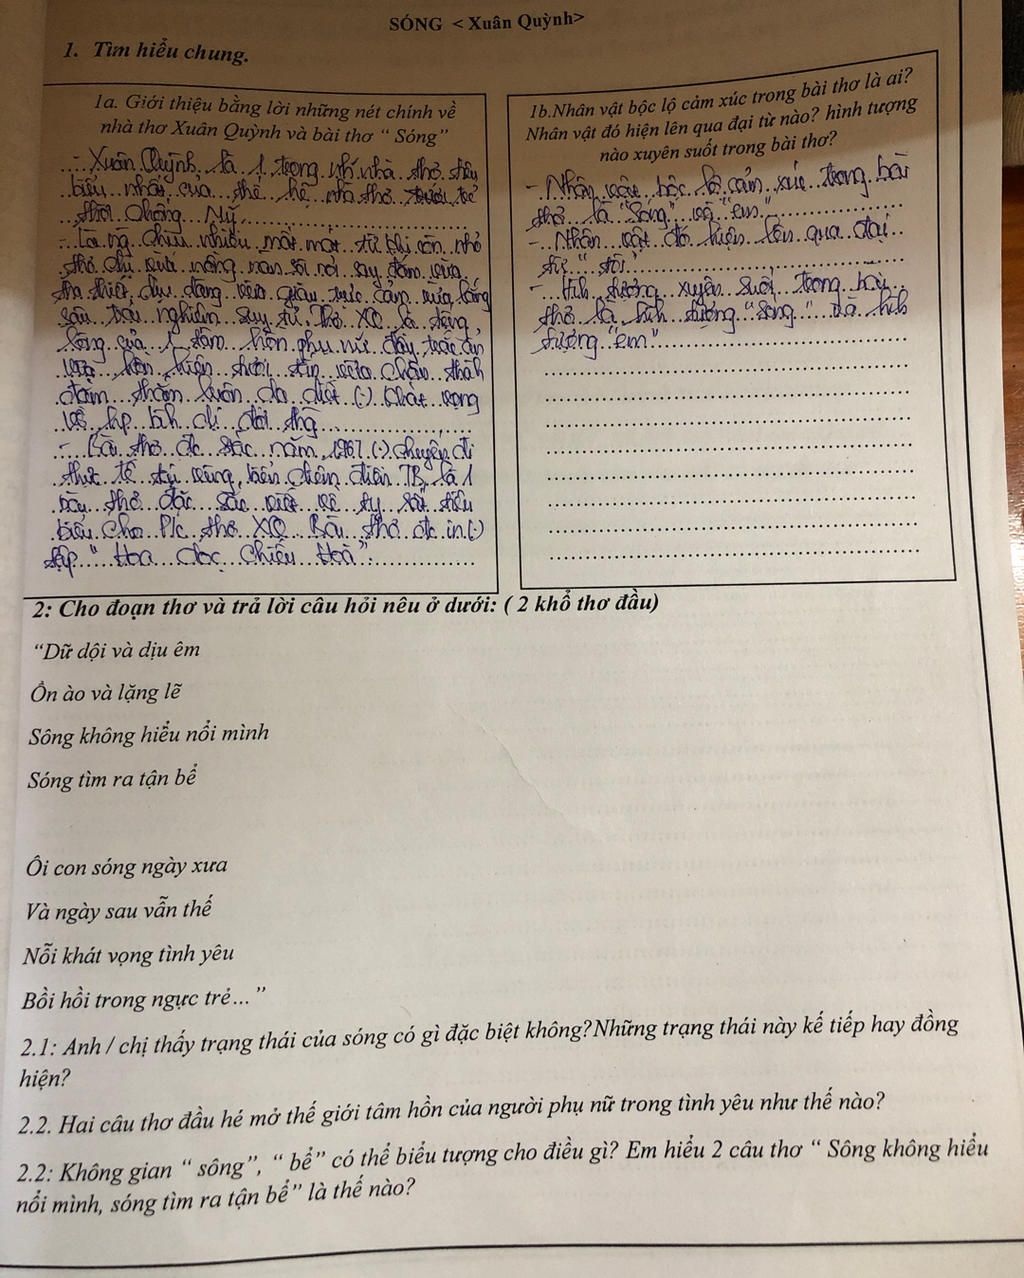 SÓNG < Xuân Quỳnh>
1. Tìm hiểu chung.
1a. Giới thiệu bằng lời những nét chính về
nhà thơ Xuân Quỳnh và bài thơ “ Sóng”
- Xuân Quỳnh là 1 trong nhà thơ tiêu
biểu nhất của thế hệ nhà thơ trẻ
thời chống Mỹ
- Là ng chịu nhiều mất mát từ khi còn nhỏ
thơ chị nồng nàn sôi nổi say đắm vừa
tha thiết, dịu dàng vừa giàu trực cảm vừa lắng
sâu trải nghiệm suy tư. Thơ XQ là tiếng
lòng của 1 tâm hồn phụ nữ đầy trắc ẩn
vừa hồn nhiên tươi tắn vừa chân thành
đằm thắm luôn da diết (.) khát vọng
về hp bình dị đời thg
- Bài thơ đc sác năm 1967 (.) chuyến đi
thực tế tại vùng biển Diêm Điền TB, là 1
bài thơ đặc sắc viết về ty, rất tiêu
biểu cho P/c thơ XQ. Bài thơ đc in (.)
tập “ Hoa dọc chiến hoà”.
1b.Nhân vật bộc lộ cảm xúc trong bài thơ là ai?
Nhân vật đó hiện lên qua đại từ nào? hình tượng
nào xuyên suốt trong bài thơ?
- Nhân vật bộc lộ cảm xúc trong bài
thơ là “Sóng” và “em”
- Nhân vật đó hiện lên qua đại
từ “ tôi”
- Hình tượng xuyên suốt trong bài
thơ là hình tượng “Sóng” và hình
tượng “em”
2: Cho đoạn thơ và trả lời câu hỏi nêu ở dưới: ( 2 khổ thơ đầu)
“Dữ dội và dịu êm
Ồn ào và lặng lẽ
Sông không hiểu nổi mình
Sóng tìm ra tận bể
Ôi con sóng ngày xưa
Và ngày sau vẫn thế
Nỗi khát vọng tình yêu
Bồi hồi trong ngực trẻ... ”
2.1: Anh / chị thấy trạng thái của sóng có gì đặc biệt không?Những trạng thái này kế tiếp hay đồng
hiện?
2.2. Hai câu thơ đầu hé mở thế giới tâm hồn của người phụ nữ trong tình yêu như thế nào?
2.2: Không gian “ sông”, “ bể” có thể biểu tượng cho điều gì? Em hiểu 2 câu thơ “ Sông không hiểu
nổi mình, sóng tìm ra tận bể” là thế nào?